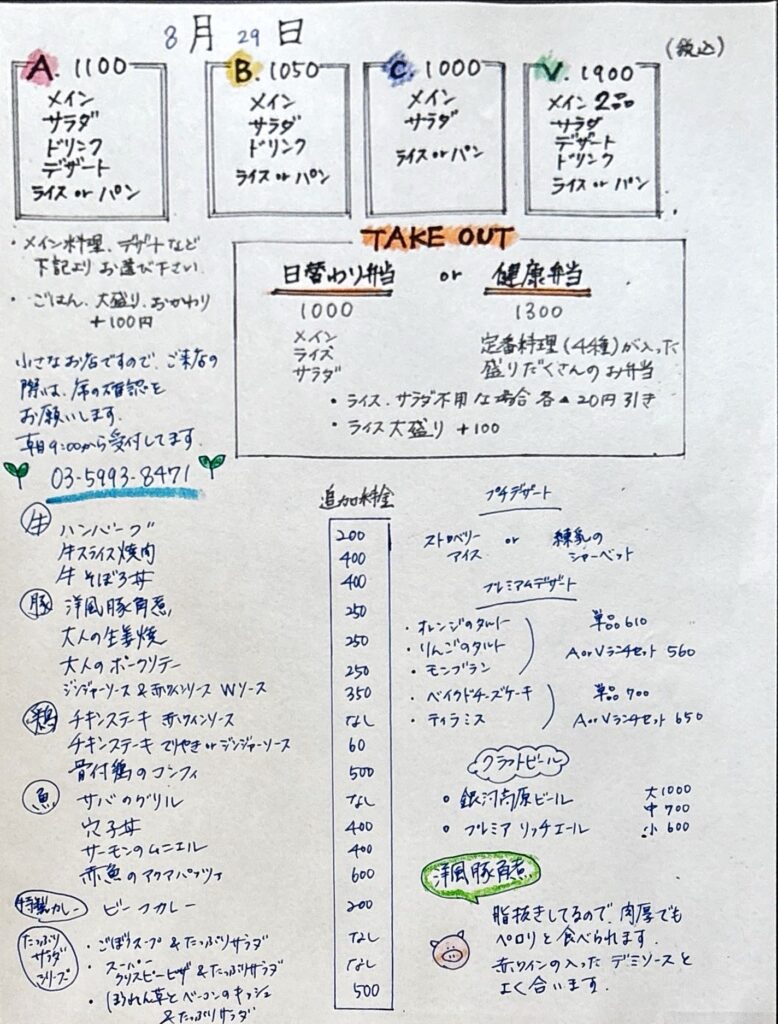 8月29日
(税込)
A. 1100
メイン
サラダ
ドリンク
デザート
ライス or パン
B. 1050
メイン
サラダ
ドリンク
ライス or パン
C. 1000
メイン
サラダ
ライス or パン
V. 1900
メイン 2品
サラダ
デザート
ドリンク
ライス or パン
・メイン料理、デザートなど
下記よりお選び下さい
・ごはん、大盛り、おかわり
+100円
小さなお店ですので、ご来店の
際は、席の確認を
お願いします.
朝9:00から受付してます.
03-5993-8471
TAKE OUT
日替わり弁当 or 健康弁当
1000
メイン
ライス
サラダ
1300
定番料理(4種)が入った
盛りだくさんのお弁当
・ライス、サラダ不用な場合 各▲20円引き
・ライス大盛り +100
追加料金
牛
ハンバーグ 200
牛スライス焼肉 400
牛そぼろ丼 400
豚
洋風豚角煮 250
大人の生姜焼 250
大人のポークソテー 250
ジンジャーソース & 赤ワインソース Wソース 350
鶏
チキンステーキ 赤ワインソース なし
チキンステーキ てりやき or ジンジャーソース 60
骨付鶏のコンフィ 500
魚
サバのグリル なし
穴子丼 400
サーモンのムニエル 400
赤魚のアクアパッツァ 600
特製カレー ビーフカレー 200
たっぷり
サラダ
シリーズ
・ごぼうスープ & たっぷりサラダ なし
・スーパー
クリスピーピザ & たっぷりサラダ なし
・ほうれん草とベーコンのキッシュ 500
& たっぷりサラダ
プチデザート
ストロベリー
アイス
or
練乳の
シャーベット
プレミアムデザート
・オレンジのタルト
・りんごのタルト
・モンブラン
単品610
A or Vランチセット 560
・ベイクドチーズケーキ
・ティラミス
単品700
A or Vランチセット 650
クラフトビール
○ 銀河高原ビール
○ プレミア リッチエール
大1000
中700
小600
洋風豚角煮
脂抜きしてるので、肉厚でも
ペロリと食べられます.
赤ワインの入ったデミソースと
よく合います.